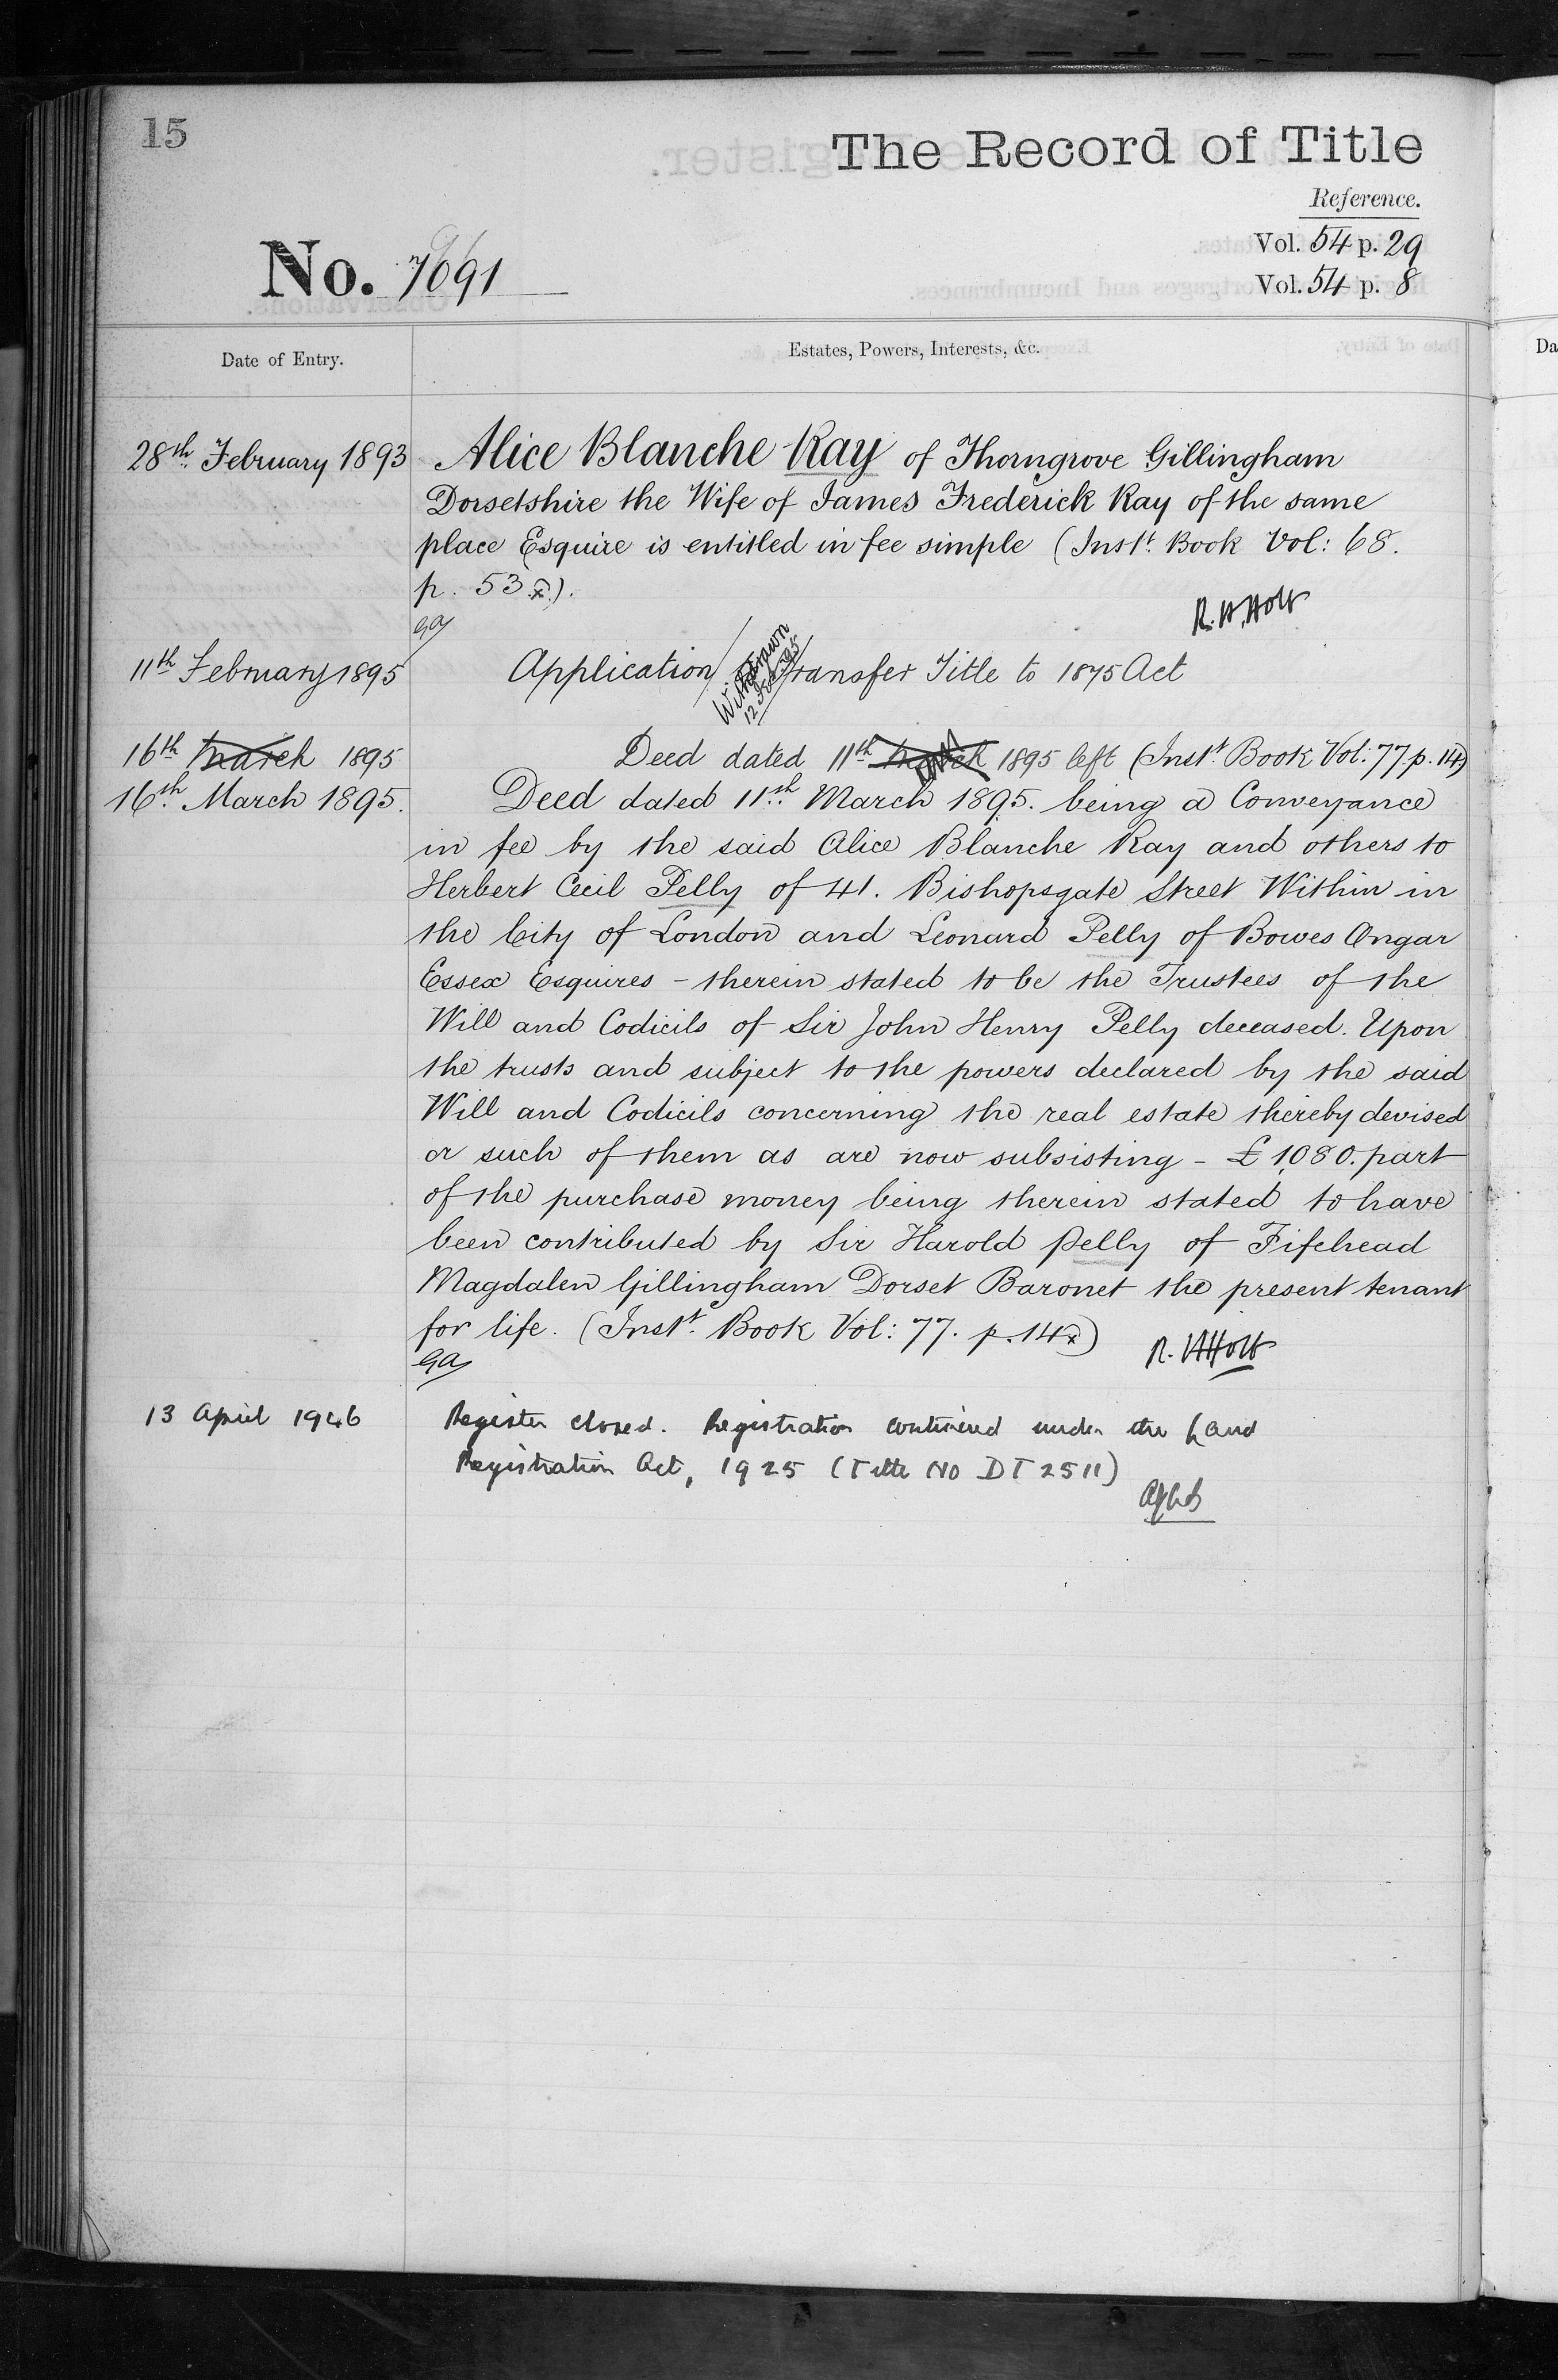 15
The Record of Title
Reference.
Vol. 54 p. 29
No. 7691
Vol. 54 p. 8
Date of Entry.
Estates, Powers, Interests, &c.
28th February 1893 Alice Blanche Ray of Thorngrove Gillingham
Dorsetshire the Wife of James Frederick Ray of the same
place Esquire is entitled in fee simple (Instt. Book Vol: 68.
p. 53x).
R. A. Holt
11th February 1895 Application transfer Title to 1875 Act
Withdrawn
12 Feb. 95
16th March 1895 Deed dated 11th March 1895 left (Instt. Book Vol: 77. p. 14)
16th March 1895. Deed dated 11th March 1895. being a Conveyance
in fee by the said Alice Blanche Ray and others to
Herbert Cecil Pelly of 41. Bishopsgate Street Within in
the City of London and Leonard Pelly of Bowes Ongar
Essex Esquires - therein stated to be the Trustees of the
Will and Codicils of Sir John Henry Pelly deceased. Upon
the trusts and subject to the powers declared by the said
Will and Codicils concerning the real estate thereby devised
or such of them as are now subsisting - £1,080. part
of the purchase money being therein stated to have
been contributed by Sir Harold Pelly of Fifehead
Magdalen Gillingham Dorset Baronet the present tenant
for life. (Instt. Book Vol: 77. p. 14x)
R. A. Holt
13 April 1946 Register closed. Registration continued under the Land
Registration Act, 1925 (Title No DT 2511)
Da